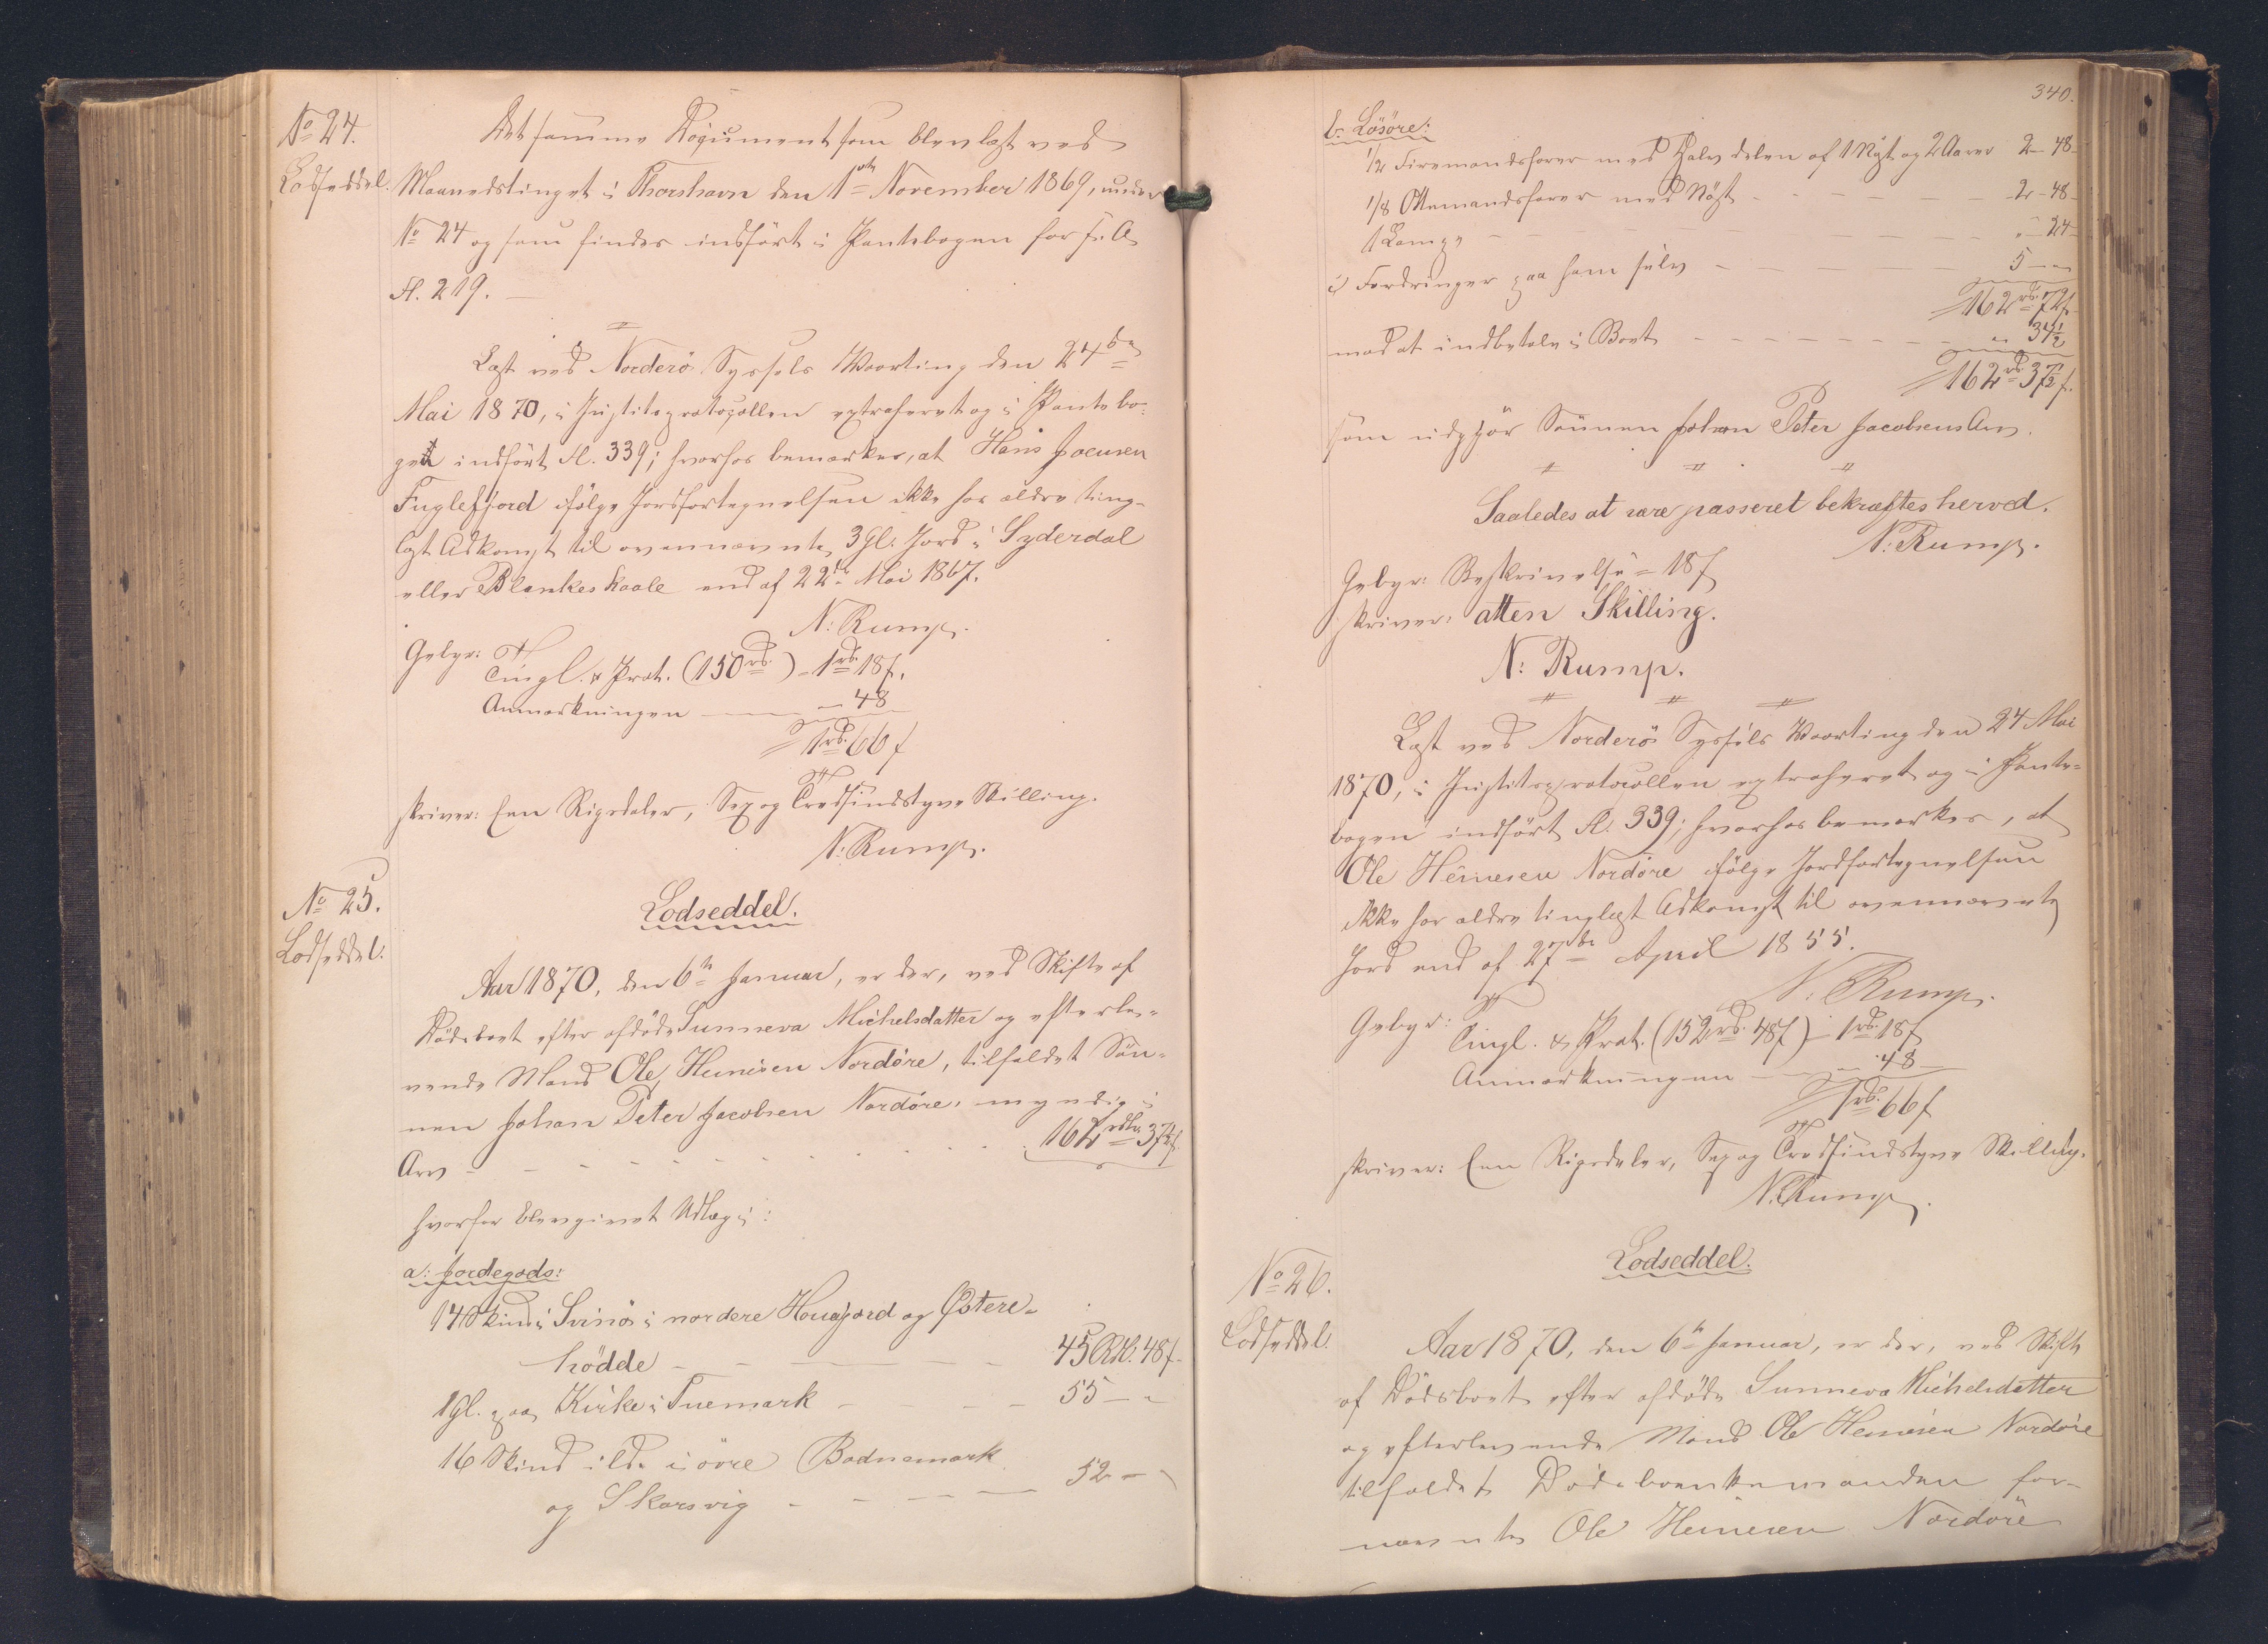 No 24.
Lodseddel.
Det samme Document som blev læst ved
Maanedstinget i Thorshavn den 1ste November 1869, under
No 24 og som findes indført i Pantebogen for s: A
Fl. 219.
Læst ved Norderö Syssels Vaarting den 24de
Mai 1870, i Justitsprotocollen extraheret og i Pantebo-
gen indfört Fl. 339; hvorhos bemærkes, at Hans Joensen
Fuglefjord ifölge Jordfortegnelsen ikke har ældre ting-
læst Adkomst til ovennævnte 3 Gl. Jord i Syderdal
eller Blankeskaale end af 22de Mai 1867.
N: Rump.
Gebyr: Tingl. & Prot. (150 rd.) - 1 rd. 18 s.
Anmærkningen - 48
1 rd. 66 s
skriver: Een Rigsdaler, Sex og Tredsindstyve Skilling.
N: Rump.
No 25.
Lodseddel.
Lodseddel.
Aar 1870, den 6te Januar, er der, ved Skifte af
Dödsboet efter afdöde Sunneva Michelsdatter og efterle-
vende Mand Ole Heinesen Nordöre, tilfaldet Sön-
nen Johan Peter Jacobsen Nordöre, myndig i
Arv - 162 rdlr. 37½ s.
hvorfor blev givet Udlæg i:
a: Jordegods:
14 Skind i Svinö i nordere Houajord og Østere-
hödde - 45 Rd. 48 s.
1 Gl. paa Kirke i Tuemark - 55 - "
16 Skind i do. i övre Badnamark
og Skarsvig - 52 - "
340.
b. Lösöre:
1/2 Firemandsfarer med Halvdelen af 1 Nöst og 2 Aarer 2 - 48
1/8 Ottemandsfarer med Nöst - 2 - 48
1 Lampe - " - 24
c) Fordringer paa ham selv - 5 - "
162 rd. 72 s.
mod at indbetale i Boet - " 34½
162 rd 37½ s.
som udgjör Sönnen Johan Peter Jacobsens Arv.
Saaledes at være passeret bekræftes herved.
N: Rump.
Gebyr: Beskrivelse = 18 s
skriver: atten Skilling.
N: Rump.
Læst ved Norderö Syssels Vaarting den 24 Mai
1870, i Justitsprotocollen extraheret og i Pante-
bogen indfört Fl. 339; hvorhos bemærkes, at
Ole Heinesen Nordöre ifölge Jordfortegnelsen
ikke har ældre tinglæst Adkomst til ovennævnte
Jord end af 27de April 1855.
N. Rump.
Gebyr: Tingl. & Prot. (152 rd. 48 s) - 1 rd. 18 s
Anmærkningen - 48
1 rd. 66 s
skriver: Een Rigsdaler, Sex og Tredsindstyve Skilling.
N. Rump.
No 26.
Lodseddel.
Lodseddel.
Aar 1870, den 6te Januar, er der, ved Skifte
af Dödsboet efter afdöde Sunneva Michelsdatter
og efterlevende Mand Ole Heinesen Nordöre
tilfaldet Dödsboenkemanden for-
nævnte Ole Heinesen Nordöre